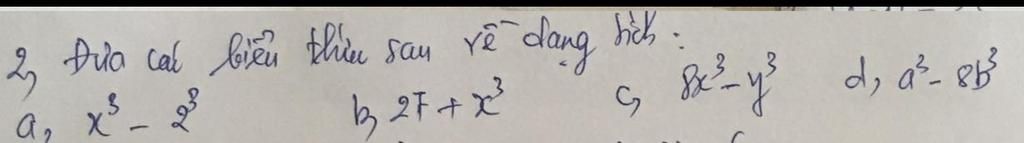 2, Đưa các biểu thức sau về dạng tích :
a, x³ - 2³ b, 27 + x³ c, 8x³ - y³ d, a³ - 8b³